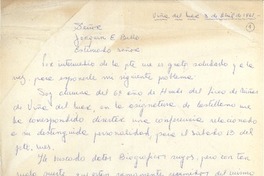 Viña del Mar, 8 de
Señor
Joaquín E. Bello
Estimado señor
Por intermedio de la pte. me es grato saludarlo y a la
vez para exponerle mi siguiente problema.
Soy alumna del 6º año de Hdes. del Liceo de Niñas
de Viña del Mar, en la asignatura de Castellano me
ha correspondido disertar una conferencia seleccionada
a su distinguida personalidad, para el sábado 13 del
pte. mes.
He buscado datos Biográficos suyos, pero con tan